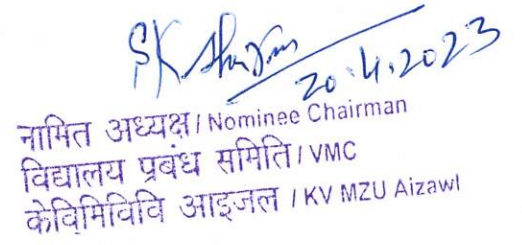 SK Sharma
20.4.2023
नामित अध्यक्ष / Nominee Chairman
विद्यालय प्रबंध समिति / VMC
केविमिविवि आइजल / KV MZU Aizawl